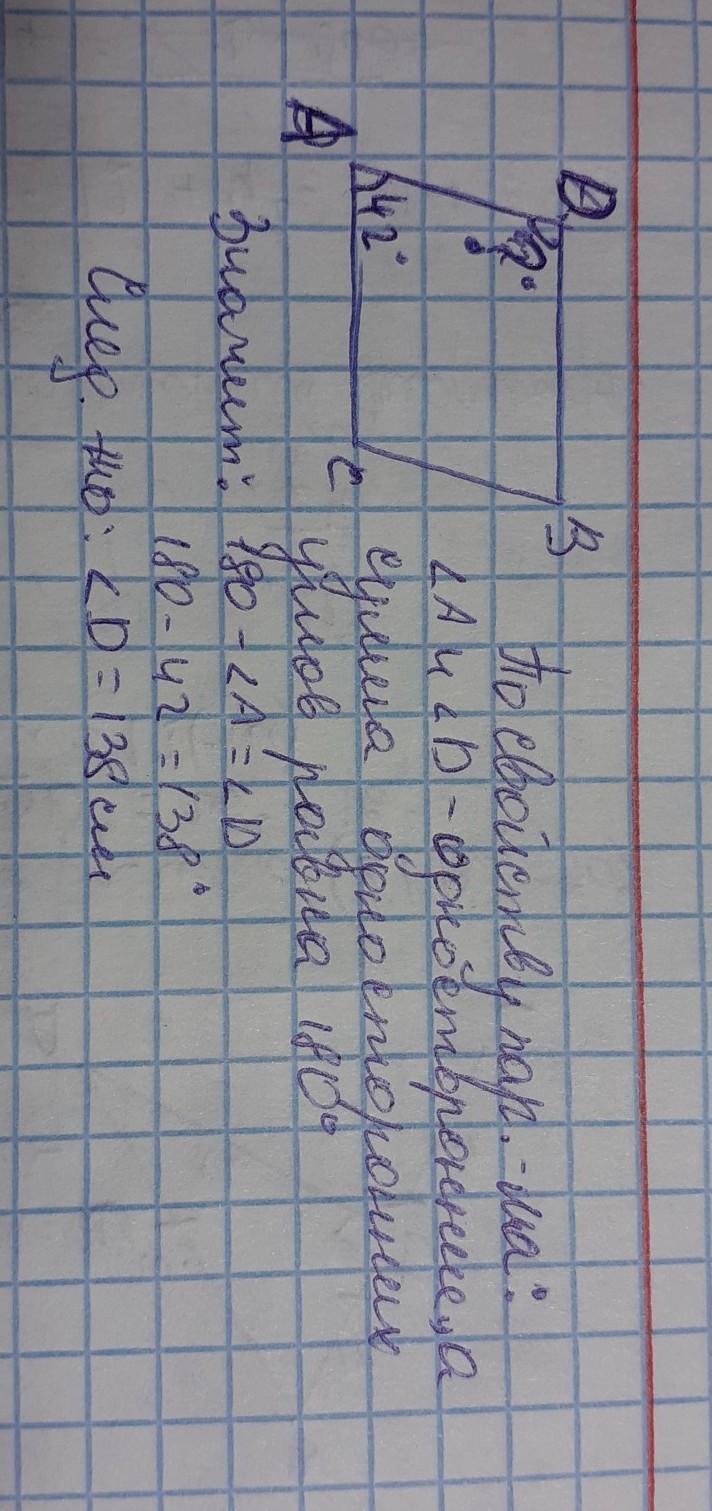 D
B
?°
A
42°
C
По свойству пар.-ма:
∠A и ∠D - односторонние, а
сумма односторонних
углов равна 180°
Значит: 180 - ∠A = ∠D
180 - 42 = 138°
След. но: ∠D = 138 см